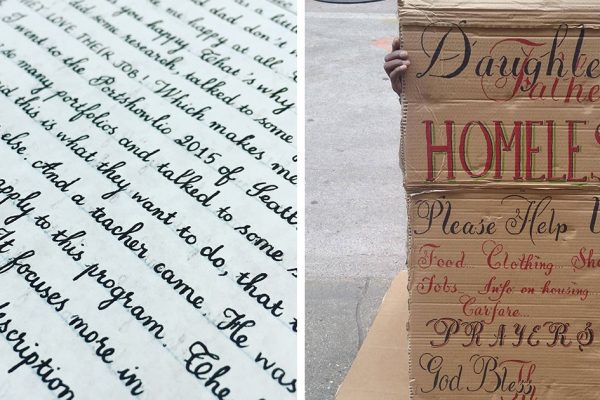 me happy at all.
you happy. That's why
did some research, talked to some
HEY LOVE THEIR JOB! Which makes me
I went to the Portshowlio 2015 of Seattl
so many portfolios and talked to some s
d this is what they want to do, that
else. And a teacher came. He was
apply to this program. The
It focuses more in
description
Daughte
Father
HOMELES
Please Help U
Food... Clothing... She
Jobs... Info on housing
Carfare...
PRAYERS
God Bless